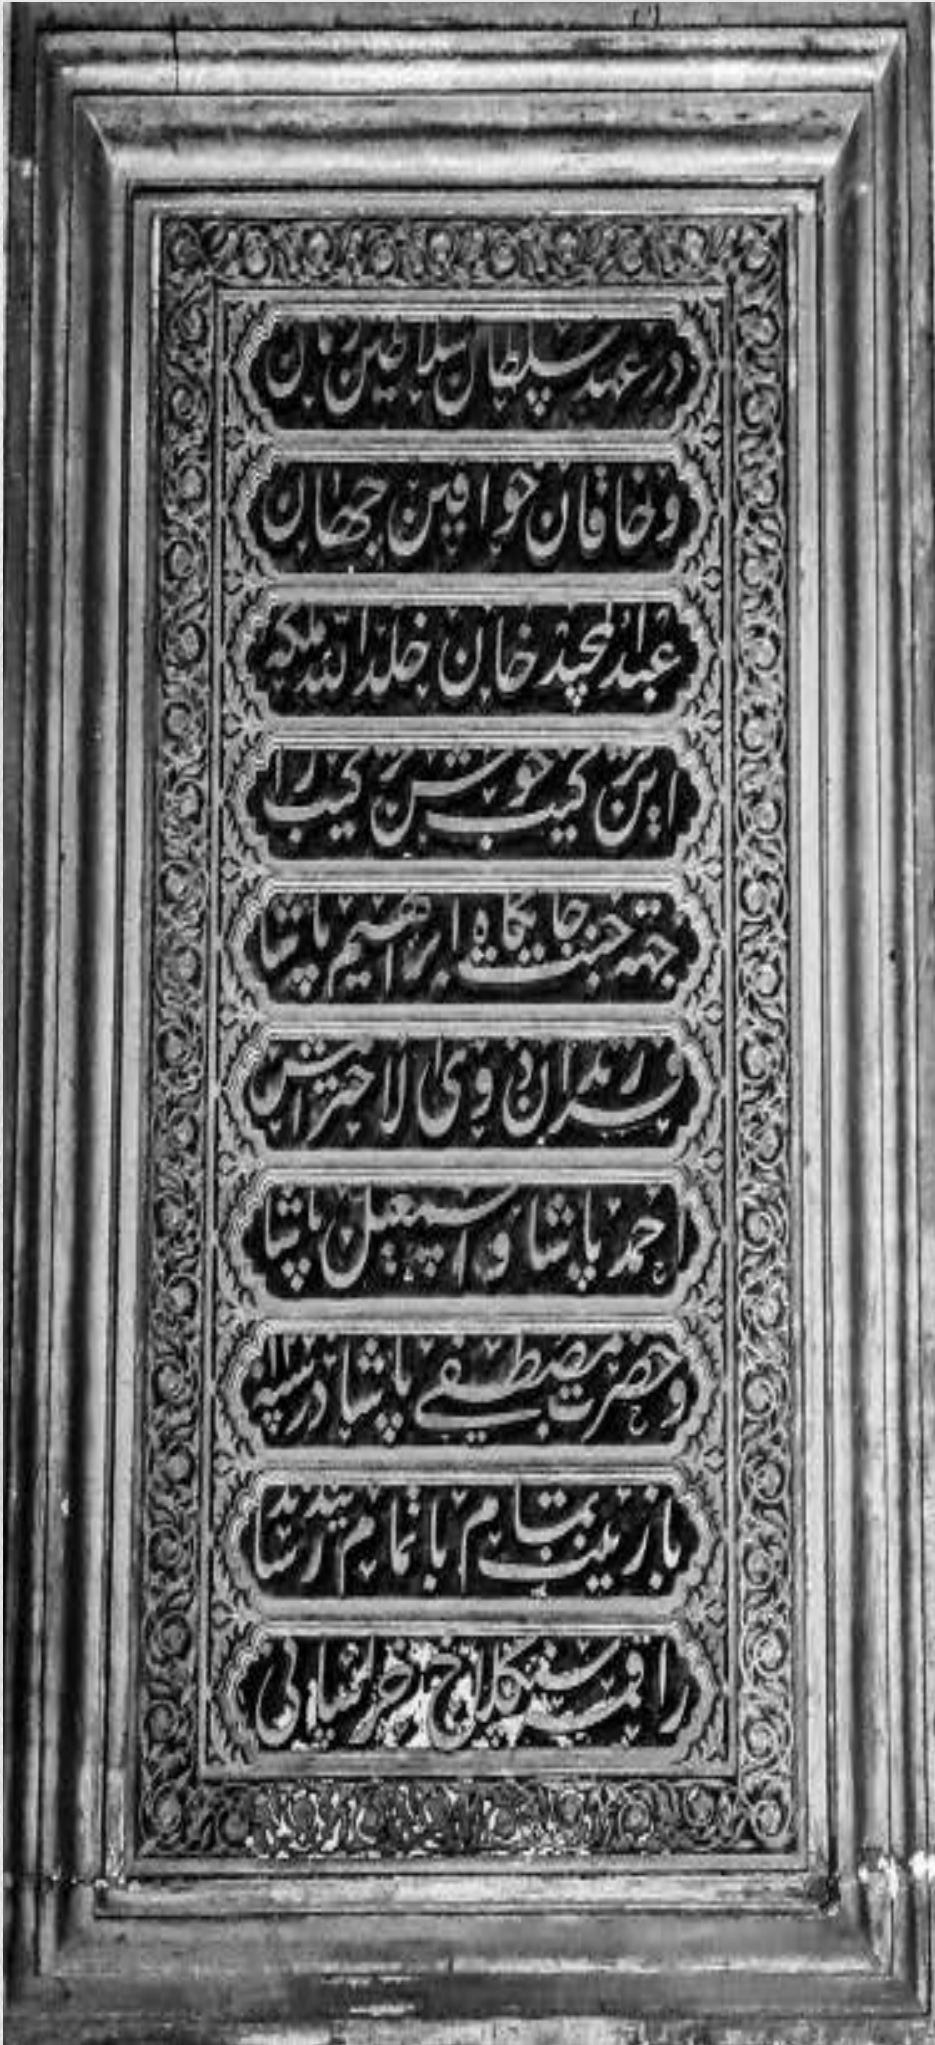 در عهد سلطان سلاطین زمان
و خاقان خواقین جهان
عبدالمجید خان خلد الله ملکه
این ترکیب خوش ترکیب را
جهة جنت جایگاه ابراهیم پاشا
فرزندان ذوی الاحترامش
احمد پاشا و اسمعیل پاشا
و حضرت مصطفی پاشا در سنه
با زینت تمام باتمام رسانیدند
راقمه سنکلاخ خراسانی